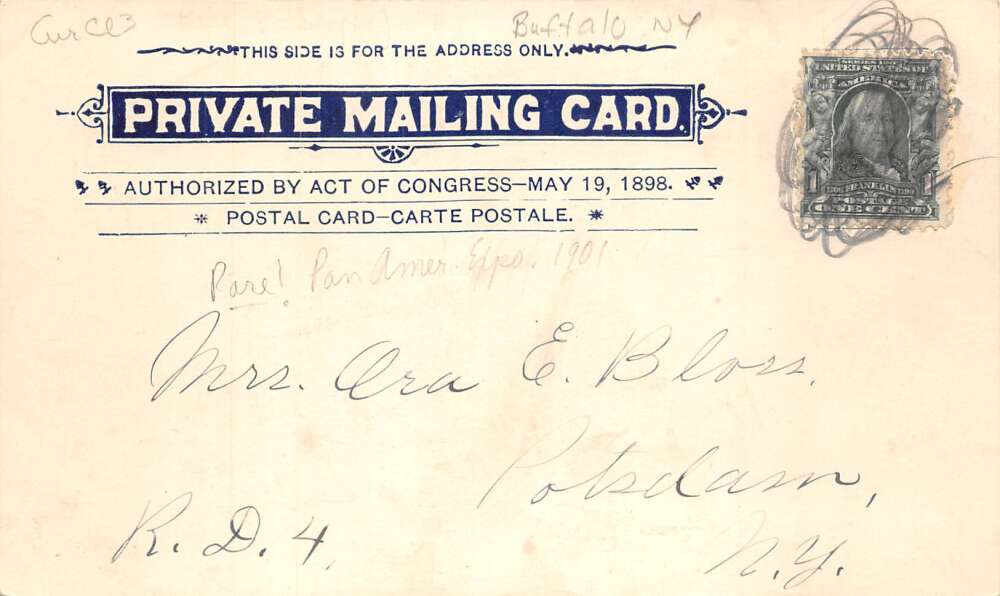 Buffalo NY
THIS SIDE IS FOR THE ADDRESS ONLY.
PRIVATE MAILING CARD.
AUTHORIZED BY ACT OF CONGRESS—MAY 19, 1898.
POSTAL CARD—CARTE POSTALE.
SERIES 1902
UNITED STATES OF
AMERICA
1 FRANKLIN 1
POSTAGE
ONE CENT
Rare! Pan Amer. Expo. 1901
Mrs. Ora E. Bloss,
Potsdam,
R. D. 4,
N.Y.